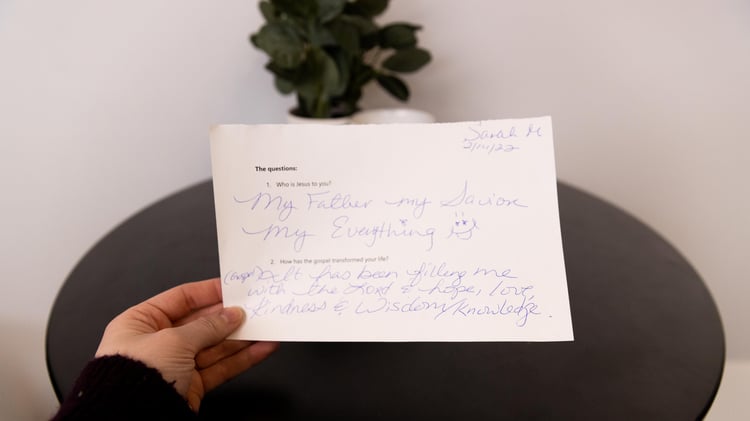 Sarah M
2/11/22
The questions:
1. Who is Jesus to you?
My Father my Savior
My Everything
2. How has the gospel transformed your life?
(Gospel) It has been filling me
with the Lord & hope, love,
Kindness & Wisdom/Knowledge.